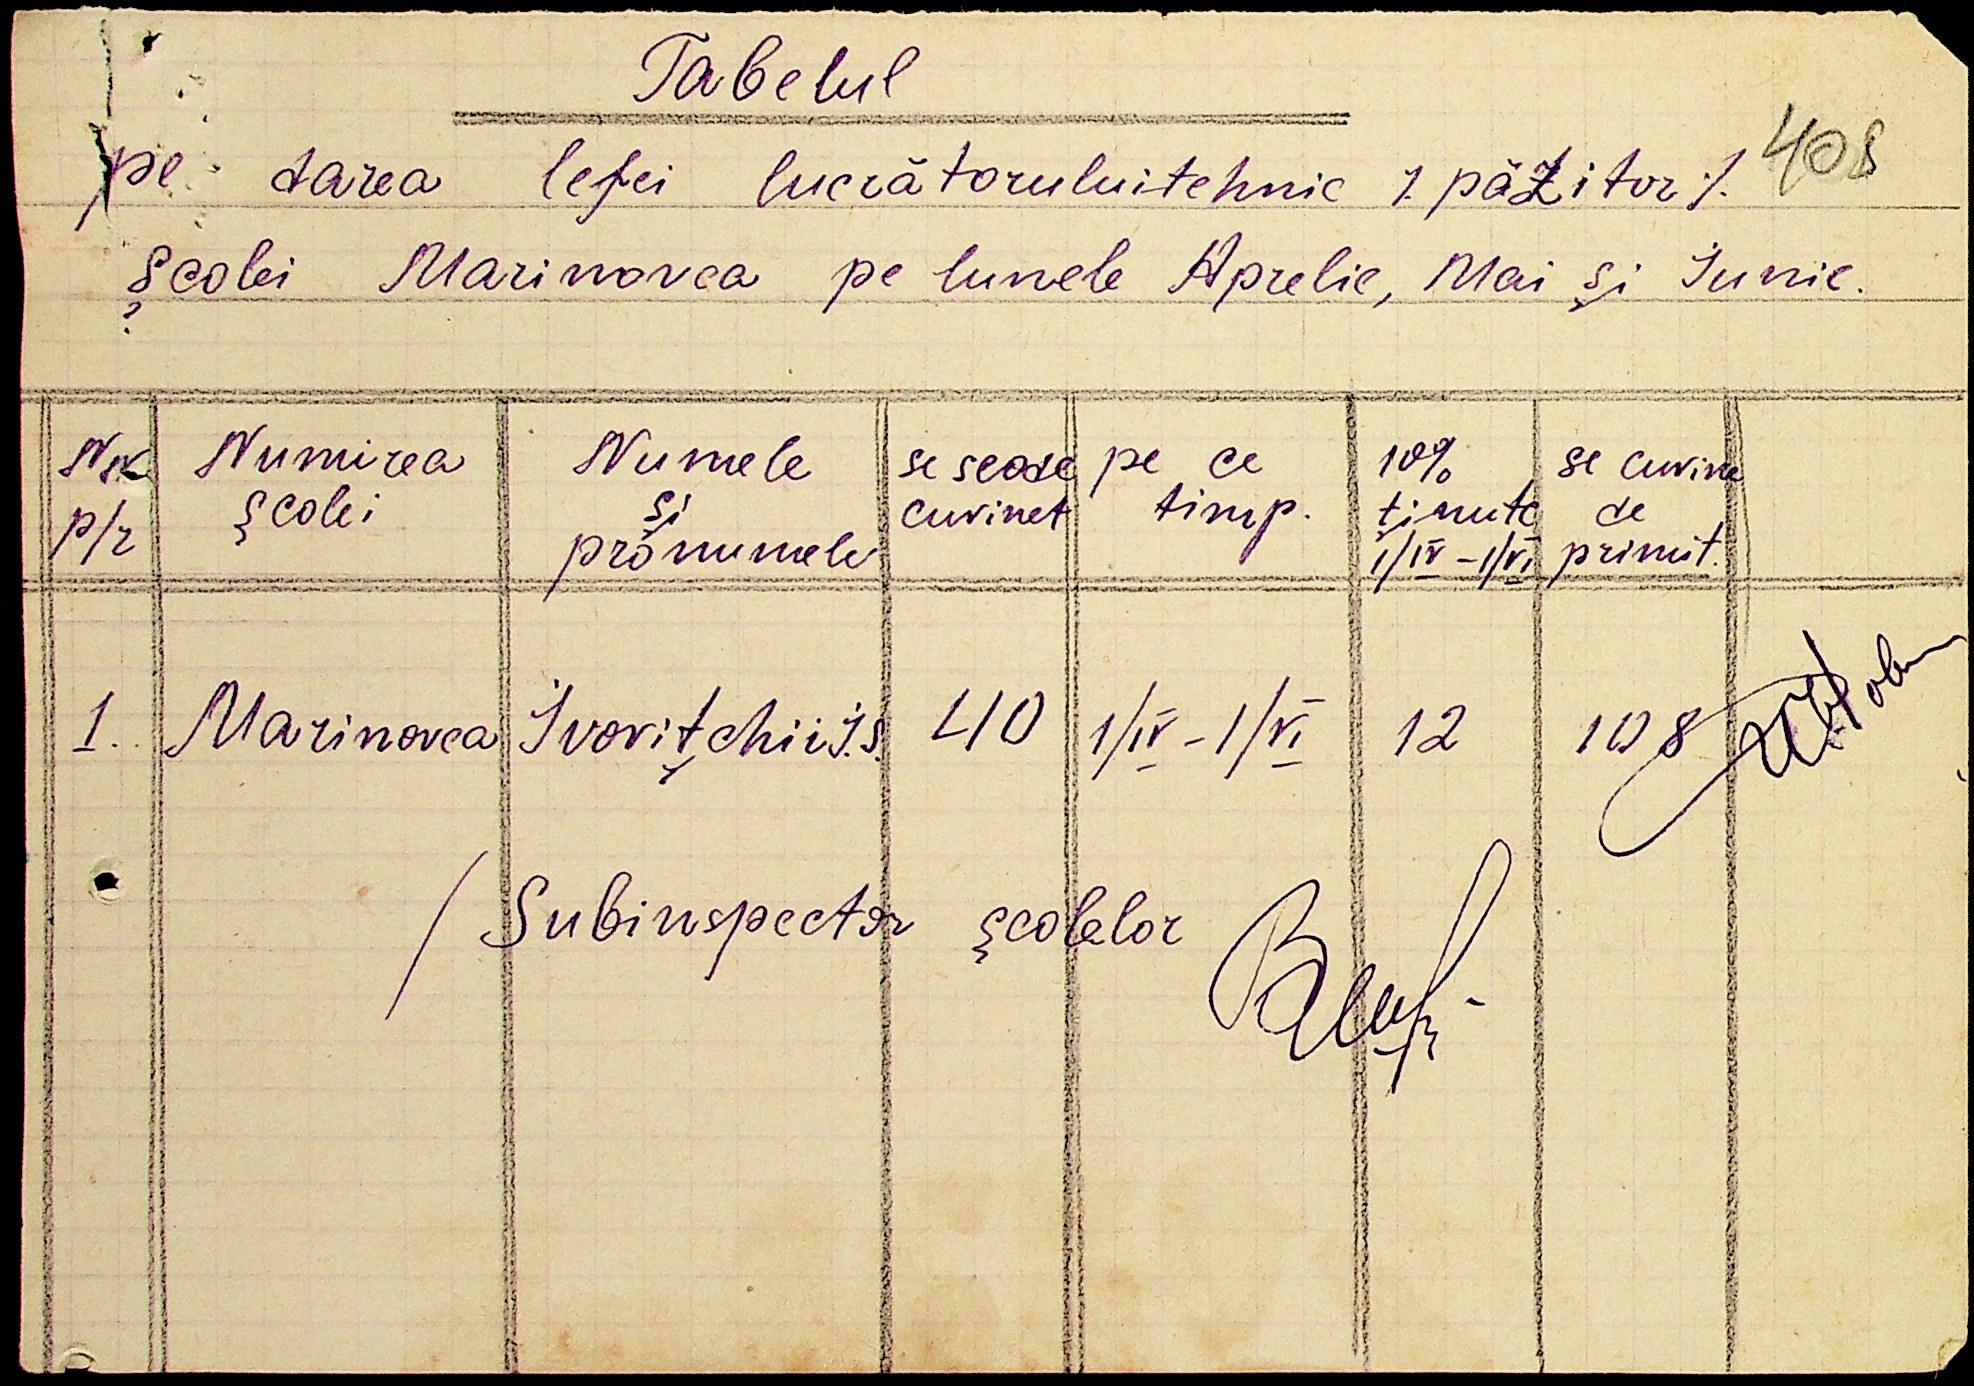 Tabelul
408
pe darea lefei lucrătoruluitehnic /. păzitor ./.
Școlei Marinovca pe lunele Aprelie, Mai și Iunie.
Numirea școlei
Numele și pronumele
se scoate cuvinet
pe ce timp.
10% ținute 1/IV - 1/VI
se cuvine de primit.
1. Marinovca Ivorițchii I.S. 40 1/IV - 1/VI 12 108
Subinspector școlelor